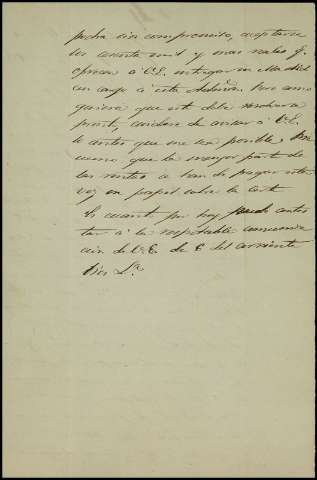 podra sin compromiso, aceptarse
los cuarenta mil y mas reales q.
ofrecen á V.E. entregar en Madrid
con cargo á esta Admón. Pero como
quisiera que esté debe
pronto, cuidare de avisar á V.E.
lo antes que me sea posible,
como que la mayor parte de
las rentas se han de pagar esta
vez en papel sobre la Corte
Es cuanto por hoy puedo contes
tar á la respetable comunica
cion de V.E. de 6 del corriente
Dios &.a